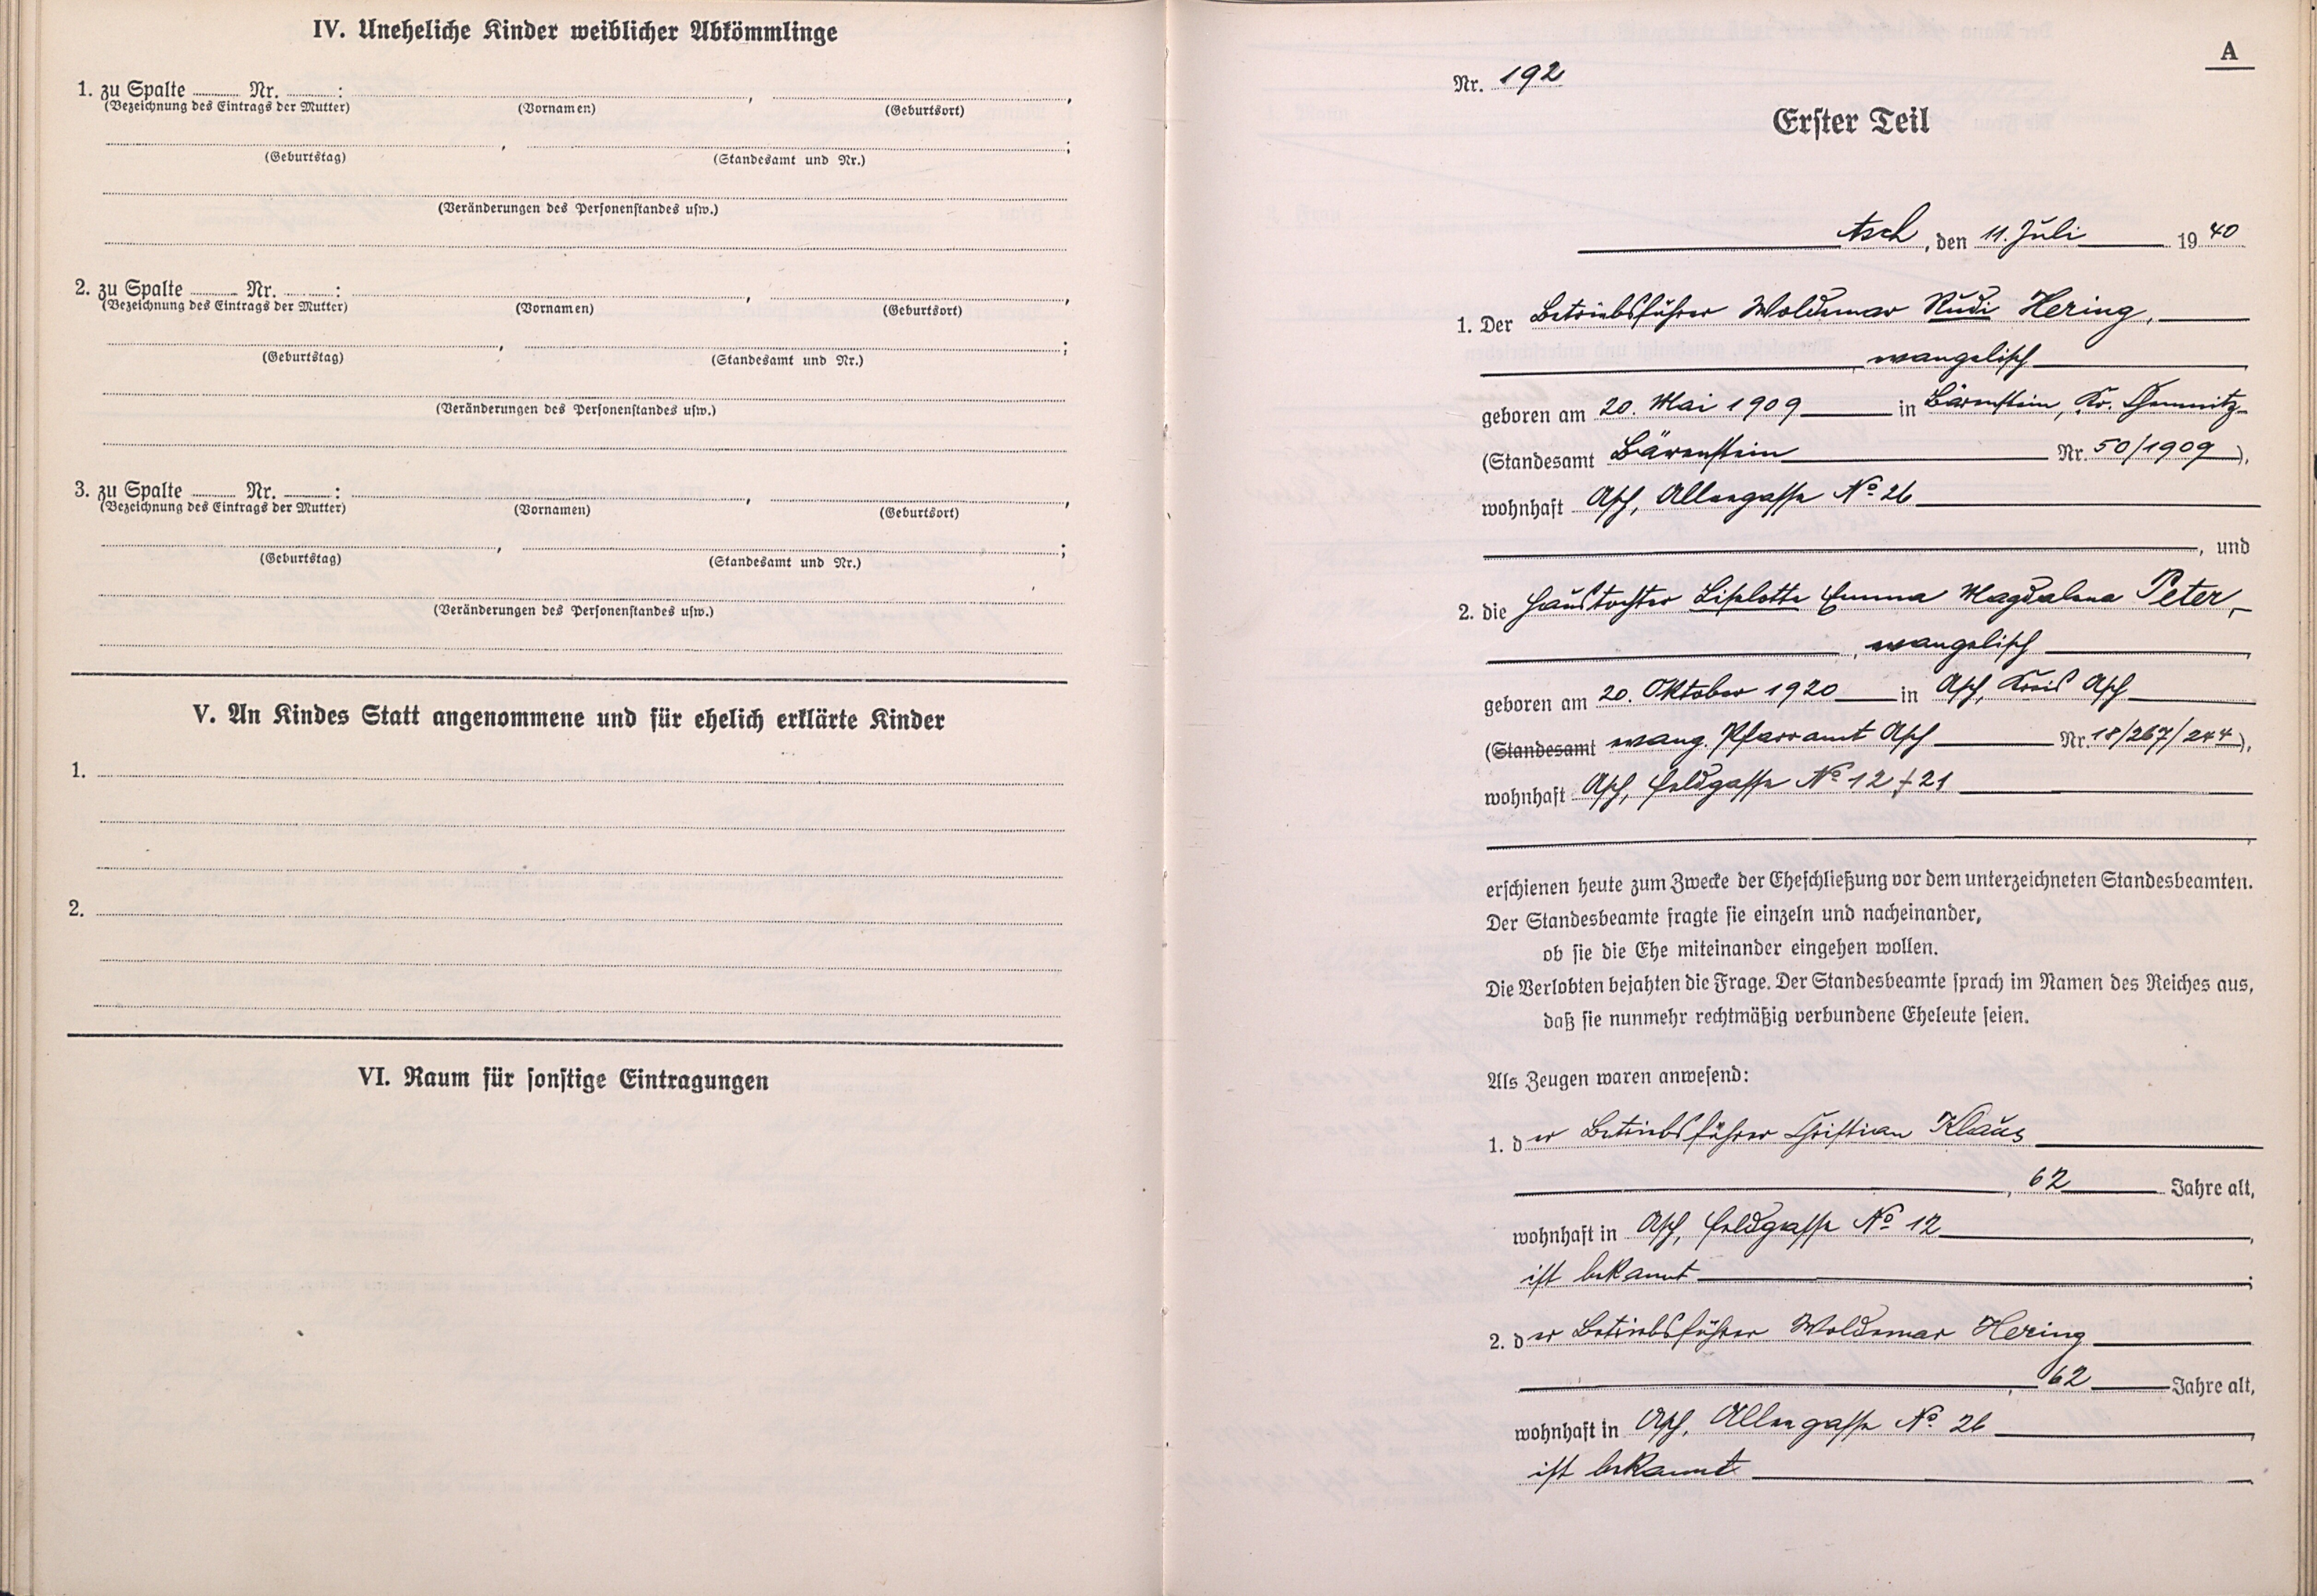 IV. Uneheliche Kinder weiblicher Abkömmlinge
1. zu Spalte ........ Nr. ........ :
(Bezeichnung des Eintrags der Mutter) (Vornamen) , (Geburtsort) ,
(Geburtstag) , (Standesamt und Nr.) ;
(Veränderungen des Personenstandes usw.)
2. zu Spalte ........ Nr. ........ :
(Bezeichnung des Eintrags der Mutter) (Vornamen) , (Geburtsort) ,
(Geburtstag) , (Standesamt und Nr.) ;
(Veränderungen des Personenstandes usw.)
3. zu Spalte ........ Nr. ........ :
(Bezeichnung des Eintrags der Mutter) (Vornamen) , (Geburtsort) ,
(Geburtstag) , (Standesamt und Nr.) ;
(Veränderungen des Personenstandes usw.)
V. An Kindes Statt angenommene und für ehelich erklärte Kinder
1.
2.
VI. Raum für sonstige Eintragungen
A
Nr. 192
Erster Teil
Asch, den 11. Juli 1940
1. Der Betriebsführer Woldemar Rudi Hering,
evangelisch
geboren am 20. Mai 1909 in Bärenstein, Kr. Chemnitz
(Standesamt Bärenstein Nr. 50/1909),
wohnhaft Asch, Alleegasse No 26
, und
2. die Haustochter Liselotte Emma Magdalena Peter,
, evangelisch
geboren am 20. Oktober 1920 in Asch, Kreis Asch
(Standesamt evang. Pfarramt Asch Nr. 18/267/244),
wohnhaft Asch, Feldgasse No 12 / 21
erschienen heute zum Zwecke der Eheschließung vor dem unterzeichneten Standesbeamten.
Der Standesbeamte fragte sie einzeln und nacheinander,
ob sie die Ehe miteinander eingehen wollen.
Die Verlobten bejahten die Frage. Der Standesbeamte sprach im Namen des Reiches aus,
daß sie nunmehr rechtmäßig verbundene Eheleute seien.
Als Zeugen waren anwesend:
1. der Betriebsführer Christian Klaus
, 62 Jahre alt,
wohnhaft in Asch, Feldgasse No 12,
ist bekannt ;
2. der Betriebsführer Woldemar Hering
, 62 Jahre alt,
wohnhaft in Asch, Alleegasse No 26,
ist bekannt